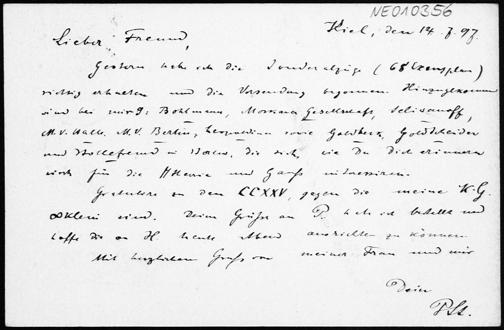 NE010356
Kiel, den 14. 7. 97.
Lieber Freund,
Gestern habe ich die Sonderabzüge (68 Exemplare)
richtig erhalten und die Versendung begonnen. Hinzugekommen
sind bei mir: Bohlmann, Gesellschaft, Selivanoff,
M.V. Halle, M.V. Berlin, sowie Goldbeck, Goldscheider
und in die sich, wie Du Dich erinnern
wirst für die und Gauss interessieren.
Gratuliere zu den CCXXV, gegen die meine K.G.
∞klein sind. Deine Grüsse an P. habe ich bestellt und
hoffe die an H. heute Abend ausrichten zu können.
Mit herzlichem Gruss von meiner Frau und mir
Dein
P. St.